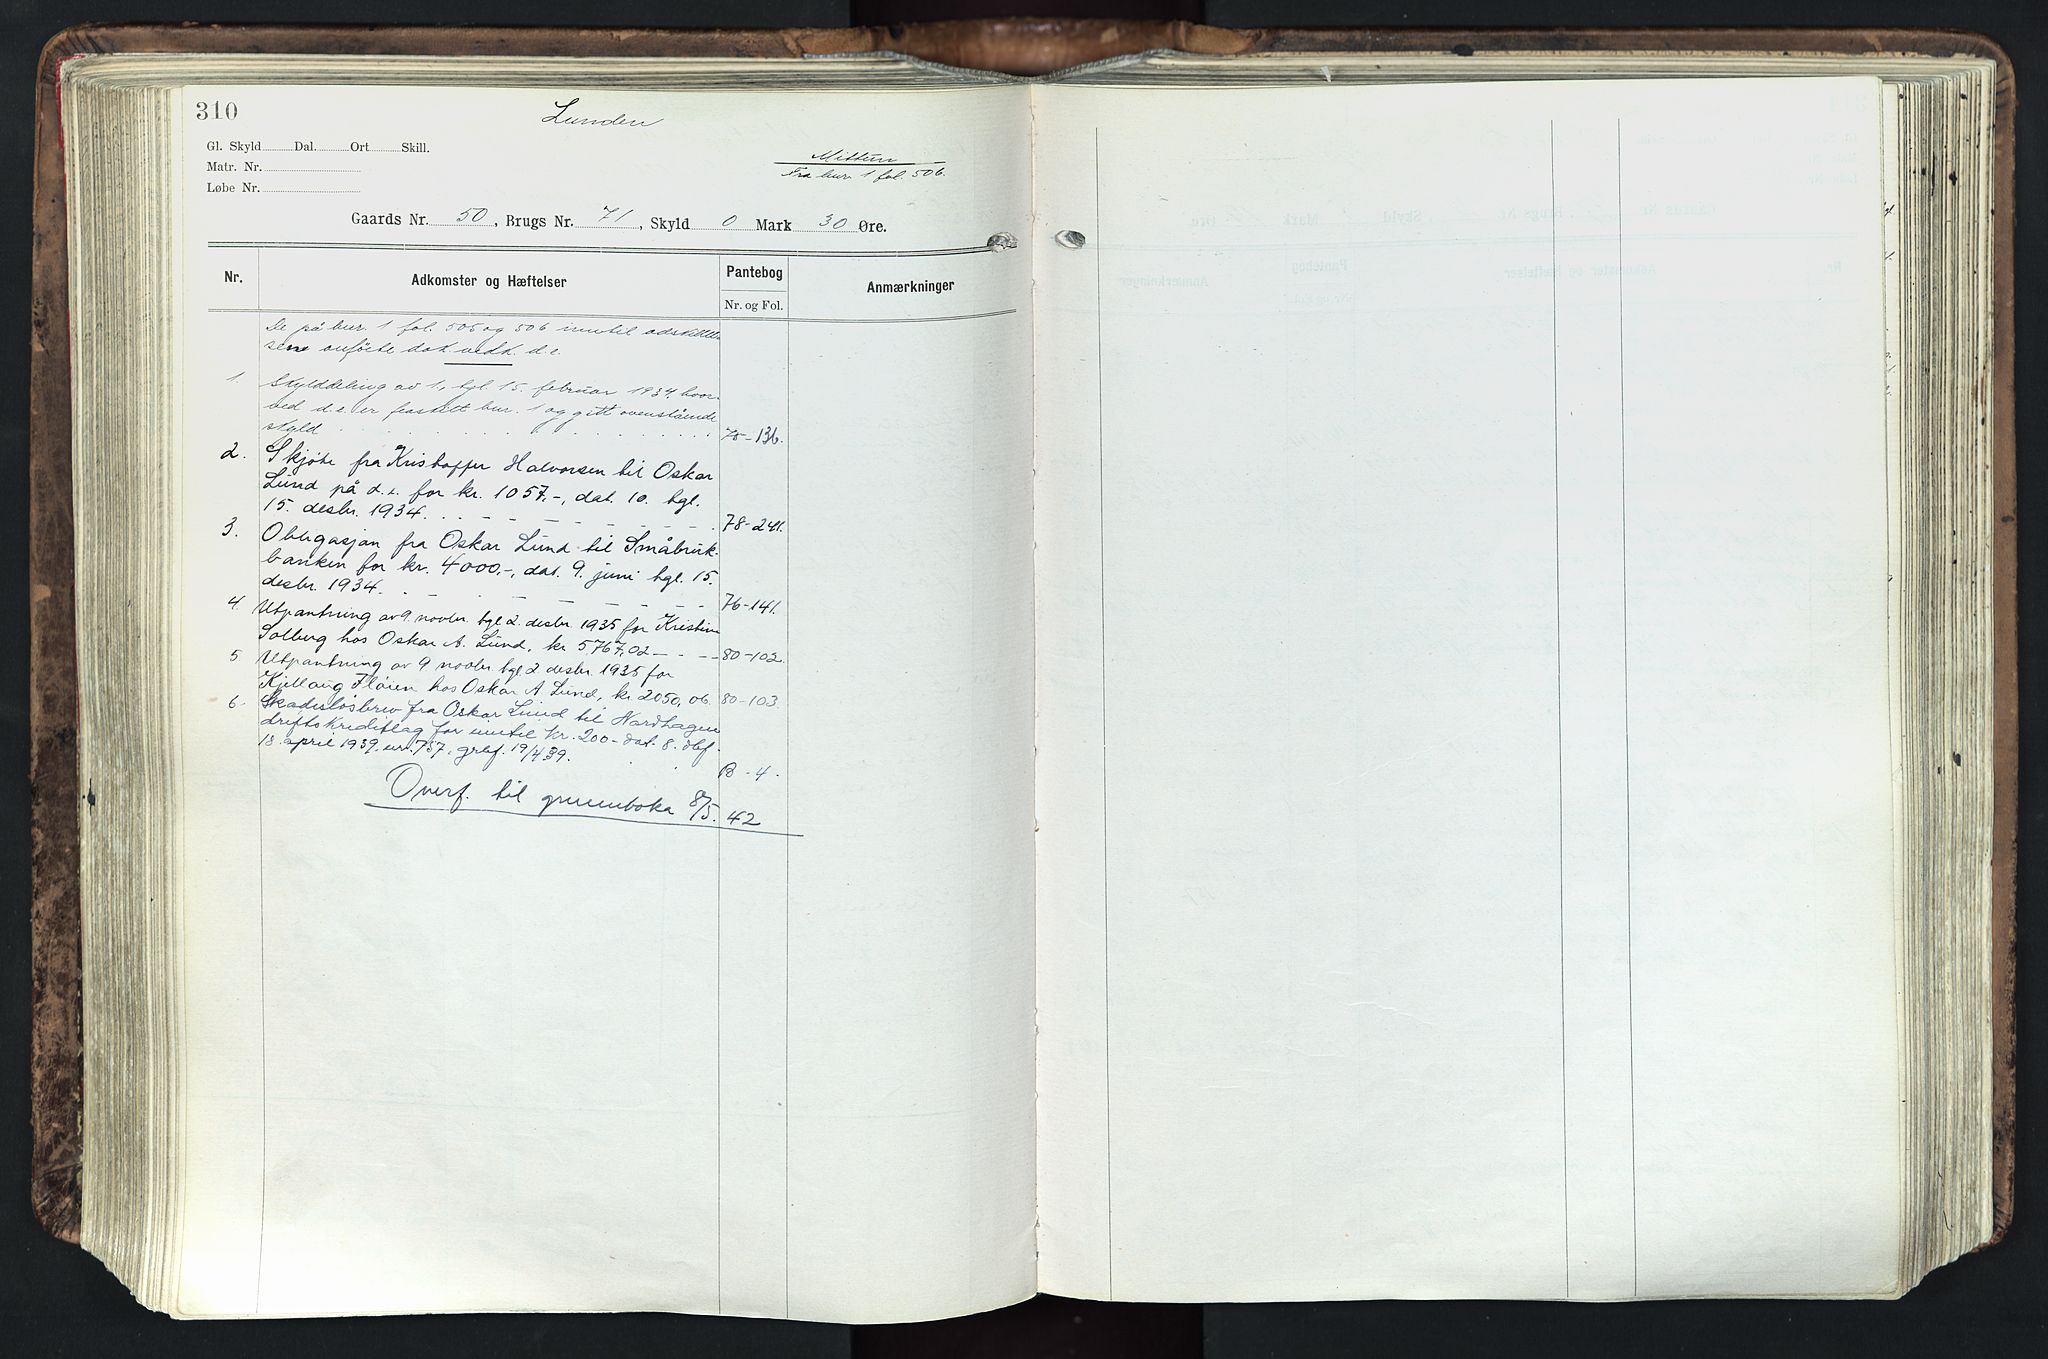 310
Lunden
Gl. Skyld Dal. Ort Skill.
Matr. Nr.
Løbe Nr.
Mittun
Fra bnr. 1 fol. 506.
Gaards Nr. 50, Brugs Nr. 71, Skyld 0 Mark 30 Øre.
Nr.
Adkomster og Hæftelser
Pantebog
Nr. og Fol.
Anmærkninger
De på bnr. 1 fol. 505 og 506 inntil adskillel-
sen anførte dok. vedk. d.e.
1. Skylddeling av 1., tgl. 15. februar 1934, hvor-
ved d.e. er fraskilt bnr. 1 og gitt ovenstående
skyld 75-136.
2. Skjøte fra Kristoffer Halvorsen til Oskar
Lund på d.e. for kr. 1057,-, dat. 10. tgl.
15. desbr. 1934. 78-241.
3. Obligasjon fra Oskar Lund til Småbruk-
banken for kr. 4000,-, dat. 9. juni tgl. 15.
desbr. 1934. 76-141.
4. Utpantning av 9. novbr. tgl 2. desbr. 1935 for Kristine
Solberg hos Oskar A. Lund, kr 5767,02 80-102.
5. Utpantning av 9 novbr. tgl 2 desbr. 1935 for
Kjellaug Fløien hos Oskar A Lund, kr. 2050,06. 80-103.
6. Skadesløsbrev fra Oskar Lund til Nordhagen
driftskreditlag for inntil kr. 200- dat. 8. dbf.
18. april 1939. nr. 757, grbf. 19/4 39. B - 4.
Overf. til grunnboka 8/5. 42